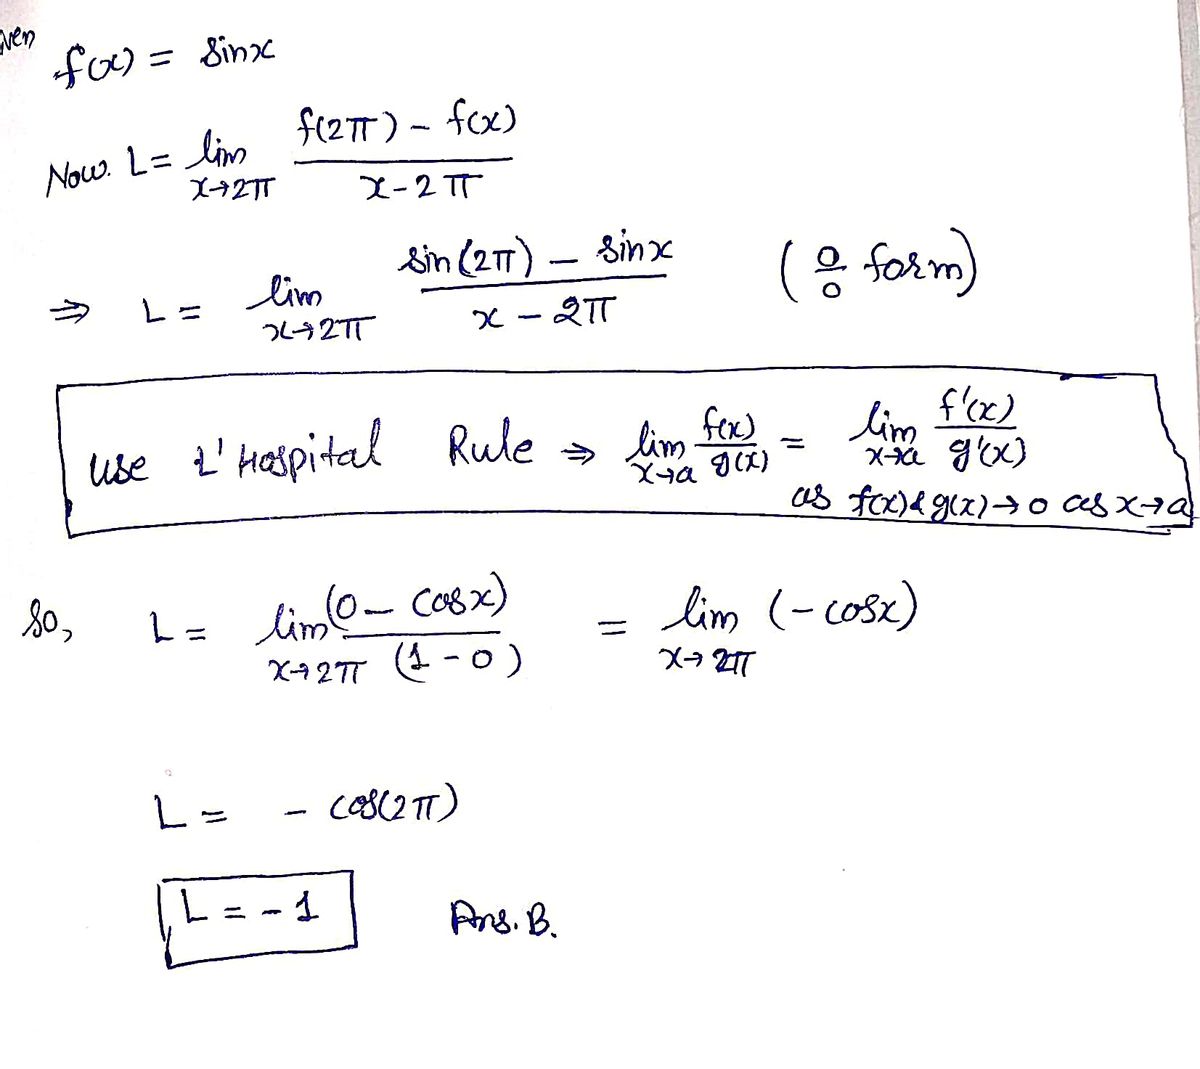 ven
f(x) = sinx
Now. L= lim x→2π (f(2π) - f(x)) / (x-2π)
⇒ L = lim x→2π (sin(2π) - sinx) / (x - 2π) (0/0 form)
use L'Hospital Rule ⇒ lim x→a f(x)/g(x) = lim x→a f'(x)/g'(x)
as f(x)&g(x)→0 as x→a
So, L = lim x→2π (0 - cosx) / (1 - 0) = lim x→2π (-cosx)
L = - cos(2π)
L = -1 Ans. B.